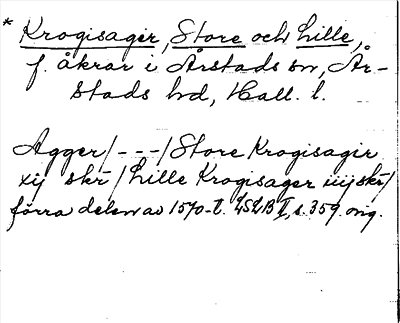 * Krogisager, Store och Lille,
f. åkrar i Årstads sn, År-
stads hd, Hall. l.
Agger/---/Store Krogisagir
xij skr/Lille Krogisager iiij skr/
förra delen av 1570-t. LSLB II, s. 359. orig.